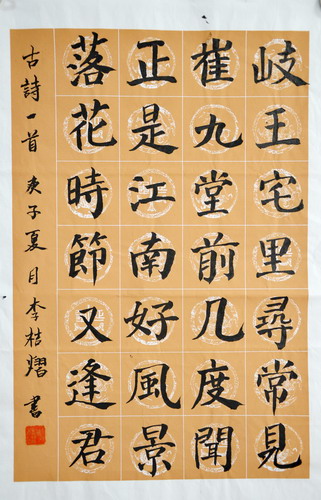 岐王宅里尋常見
崔九堂前几度聞
正是江南好風景
落花時節又逢君
古詩一首 庚子夏月李桔熠書